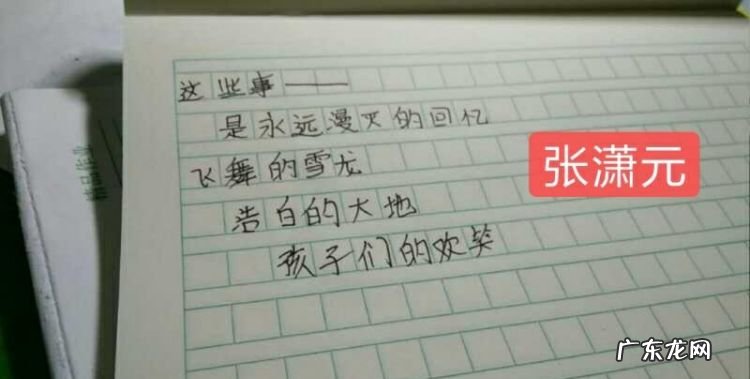 这些事——
是永远漫灭的回忆
飞舞的雪龙
浩白的大地
孩子们的欢笑
张潇元
广东龙网